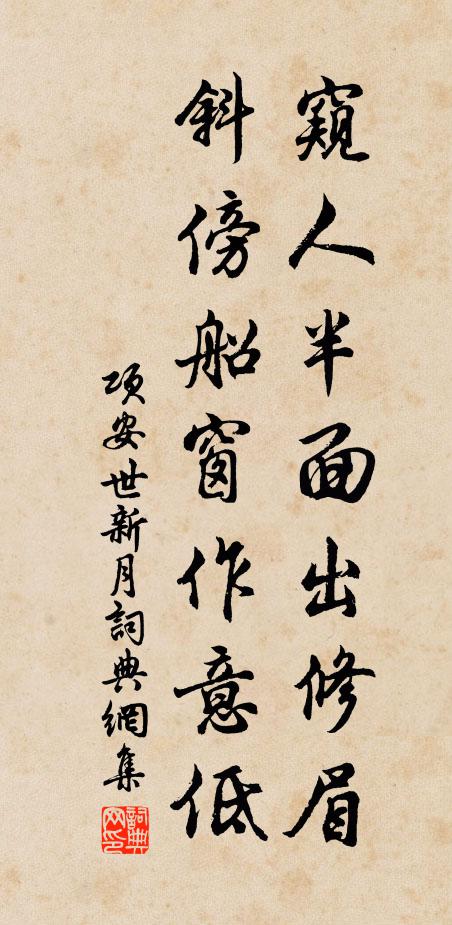 窺人半面出修眉
斜傍船窗作意低
項安世新月詞典網集
詞典網印